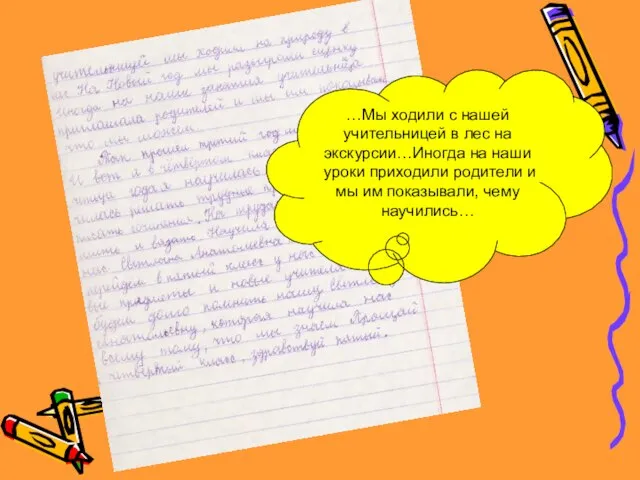 учительницей мы ходили на природу в
На Новый год мы разыграли сценку
Иногда на наши занятия учительница
приглашала родителей и мы им показывали
что мы можем.
Так прошёл третий год
И вот я в четвёртом
года я научилась
решать трудные
писать сочинения. На труда
и вязать. Научила
нас Светлана Анатольевна
перейдем в пятый класс у нас
предметы и новые учителя
будем долго помнить нашу
Анатольевну, которая научила нас
всему тому, что мы знаем Прощай
четвёртый класс, здравствуй пятый.
…Мы ходили с нашей
учительницей в лес на
экскурсии…Иногда на наши
уроки приходили родители и
мы им показывали, чему
научились…